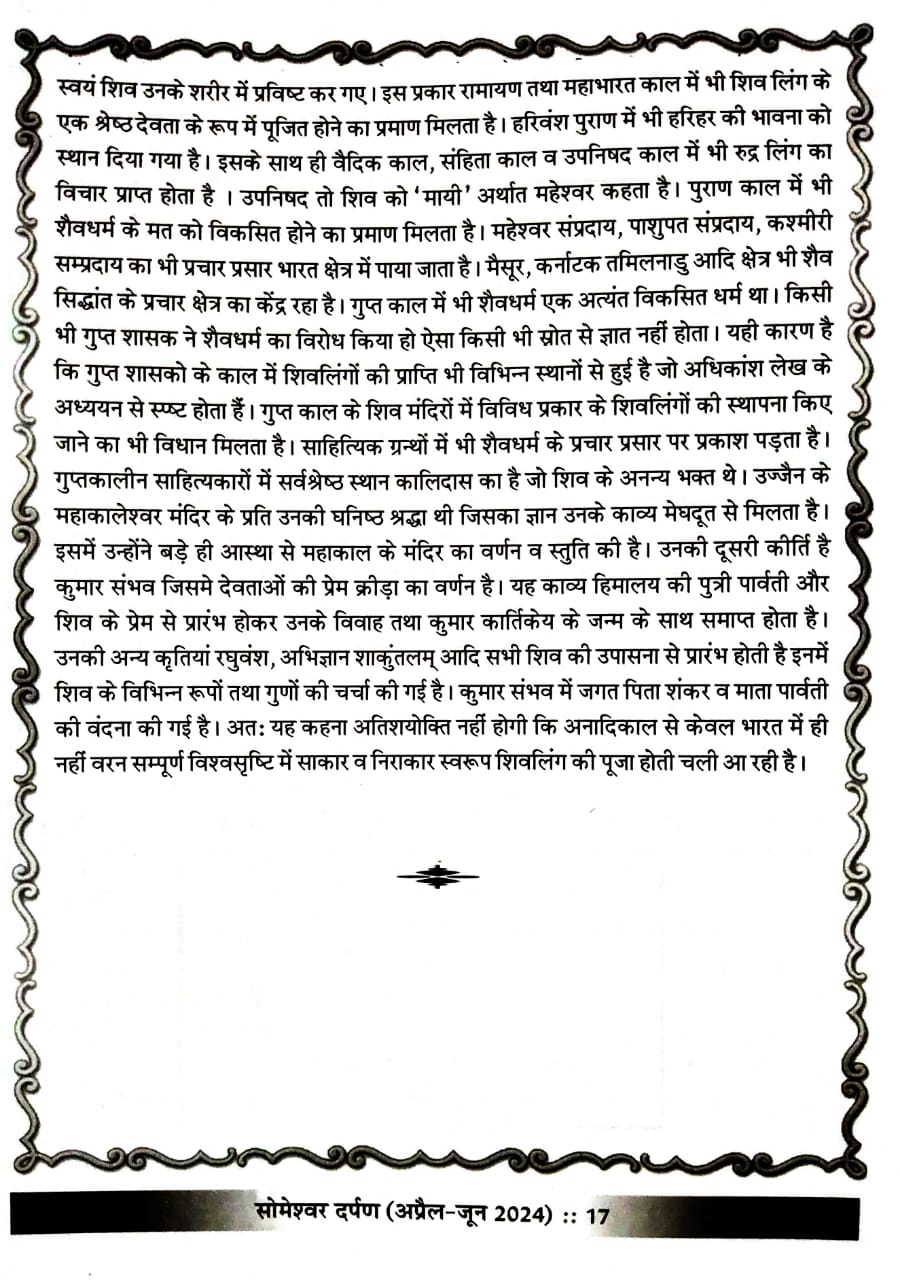 स्वयं शिव उनके शरीर में प्रविष्ट कर गए। इस प्रकार रामायण तथा महाभारत काल में भी शिव लिंग के
एक श्रेष्ठ देवता के रूप में पूजित होने का प्रमाण मिलता है। हरिवंश पुराण में भी हरिहर की भावना को
स्थान दिया गया है। इसके साथ ही वैदिक काल, संहिता काल व उपनिषद काल में भी रुद्र लिंग का
विचार प्राप्त होता है । उपनिषद तो शिव को ‘मायी’ अर्थात महेश्वर कहता है। पुराण काल में भी
शैवधर्म के मत को विकसित होने का प्रमाण मिलता है। महेश्वर संप्रदाय, पाशुपत संप्रदाय, कश्मीरी
सम्प्रदाय का भी प्रचार प्रसार भारत क्षेत्र में पाया जाता है। मैसूर, कर्नाटक तमिलनाडु आदि क्षेत्र भी शैव
सिद्धांत के प्रचार क्षेत्र का केंद्र रहा है। गुप्त काल में भी शैवधर्म एक अत्यंत विकसित धर्म था। किसी
भी गुप्त शासक ने शैवधर्म का विरोध किया हो ऐसा किसी भी स्रोत से ज्ञात नहीं होता। यही कारण है
कि गुप्त शासको के काल में शिवलिंगों की प्राप्ति भी विभिन्न स्थानों से हुई है जो अधिकांश लेख के
अध्ययन से स्प्ष्ट होता हैं। गुप्त काल के शिव मंदिरों में विविध प्रकार के शिवलिंगों की स्थापना किए
जाने का भी विधान मिलता है। साहित्यिक ग्रन्थों में भी शैवधर्म के प्रचार प्रसार पर प्रकाश पड़ता है।
गुप्तकालीन साहित्यकारों में सर्वश्रेष्ठ स्थान कालिदास का है जो शिव के अनन्य भक्त थे। उज्जैन के
महाकालेश्वर मंदिर के प्रति उनकी घनिष्ठ श्रद्धा थी जिसका ज्ञान उनके काव्य मेघदूत से मिलता है।
इसमें उन्होंने बड़े ही आस्था से महाकाल के मंदिर का वर्णन व स्तुति की है। उनकी दूसरी कीर्ति है
कुमार संभव जिसमे देवताओं की प्रेम क्रीड़ा का वर्णन है। यह काव्य हिमालय की पुत्री पार्वती और
शिव के प्रेम से प्रारंभ होकर उनके विवाह तथा कुमार कार्तिकेय के जन्म के साथ समाप्त होता है।
उनकी अन्य कृतियां रघुवंश, अभिज्ञान शाकुंतलम् आदि सभी शिव की उपासना से प्रारंभ होती है इनमें
शिव के विभिन्न रूपों तथा गुणों की चर्चा की गई है। कुमार संभव में जगत पिता शंकर व माता पार्वती
की वंदना की गई है। अत: यह कहना अतिशयोक्ति नहीं होगी कि अनादिकाल से केवल भारत में ही
नहीं वरन सम्पूर्ण विश्वसृष्टि में साकार व निराकार स्वरूप शिवलिंग की पूजा होती चली आ रही है।
सोमेश्वर दर्पण (अप्रैल-जून 2024) :: 17